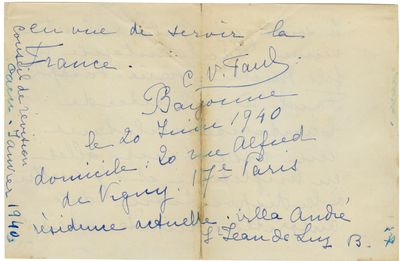 en vue de servir la
France.
C. V. Faul
Bayonne
le 20 Juin 1940
domicile : 20 rue Alfred
de Vigny. 17e Paris
résidence actuelle. villa André
St Jean de Luz B.
Conseil de révision
Caen. Janvier 1940